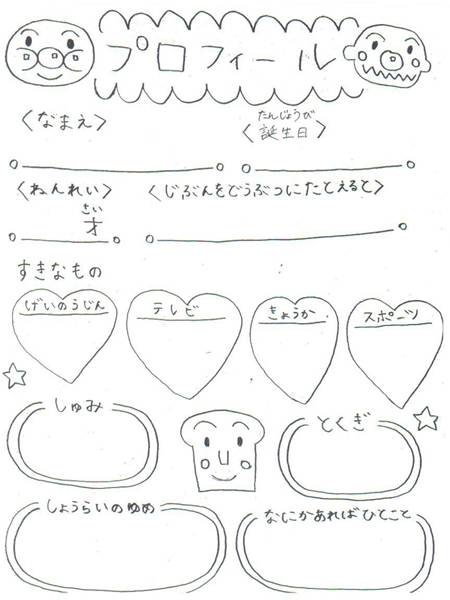 プロフィール
〈なまえ〉
たんじょうび
〈誕生日〉
〈ねんれい〉 〈じぶんをどうぶつにたとえると〉
さい
才
すきなもの
げいのうじん テレビ きょうか スポーツ
しゅみ とくぎ
しょうらいのゆめ なにかあればひとこと